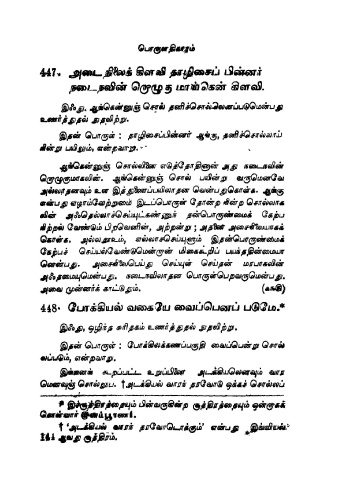 பொருளதிகாரம்
447. அடைநிலைக் கிளவி தாழிசைப் பின்னர்
நடைநவின் றொழுகு மாங்கென் கிளவி.
இஃது, ஆங்கென்னுஞ் சொல் தனிச்சொல்லெனப்படுமென்பது
உணர்த்துதல் நுதலிற்று.
இதன் பொருள் : தாழிசைப்பின்னர் ஆங்கு, தனிச்சொல்லாப்
கின்று பயிலும், என்றவாறு.
ஆங்கென்னுஞ் சொல்லினை எடுத்தோதினான் அது நடைநவின்
றொழுகுமாகலின். ஆங்கென்னுஞ் சொல் பயின்று வருமெனவே
அல்லாதனவும் உன இத்துணைப்பயிலாதன வென்பதுகொள்க. ஆங்கு
என்பது ஏழாம்வேற்றுமை இடப்பொருள் தோன்ற நின்ற சொல்லாக
லின் அஃதெல்லாச்செய்யுட்கண்ணும் தன்பொருண்மைக் கேற்ப
நிற்றல் வேண்டும் பிறவெனின், அற்றன்று ; அதனை அசைநிலையாகக்
கொள்க. அல்லதூஉம், எல்லாச்செய்யுளும் இதன்பொருண்மைக்
கேற்பச் செய்யல்வேண்டுமென்றன் மிகைகட்றிப் பயத்ததின்மையா
னென்பது. அசைநிலைபெய்து செய்யுள் செய்தன் மரபாகலின்
அஃதமையுமென்பது. நடைநவிலாதன பொருள்பெறவருமென்பது.
அவை முன்னர்க் காட்டுதும். (௧௩௫)
448. போக்கியல் வகையே வைப்பெனப் படுமே.*
இஃது, ஒழிந்த சுரிதகம் உணர்த்துதல் நுதலிற்று.
இதன் பொருள் : போக்கிலக்கணப்பகுதி வைப்பென்று சொல்
லப்படும், என்றவாறு.
இங்ஙனங் கூறப்பட்ட உறுப்பினை அடக்கியலெனவும் வார
மெனவுஞ் சொல்லுப. †அடக்கியல் வாரந் தரவோடு ஒக்கச் சொல்லப்
* இச்சூத்திரத்தையும் பின்வருகின்ற சூத்திரத்தையும் ஒன்றாகக்
கொள்வார் இளம்பூரணர்.
† 'அடக்கியல் வாரந் தரவோடொக்கும்' என்பது இவ்வியல்
ஆவது சூத்திரம்.